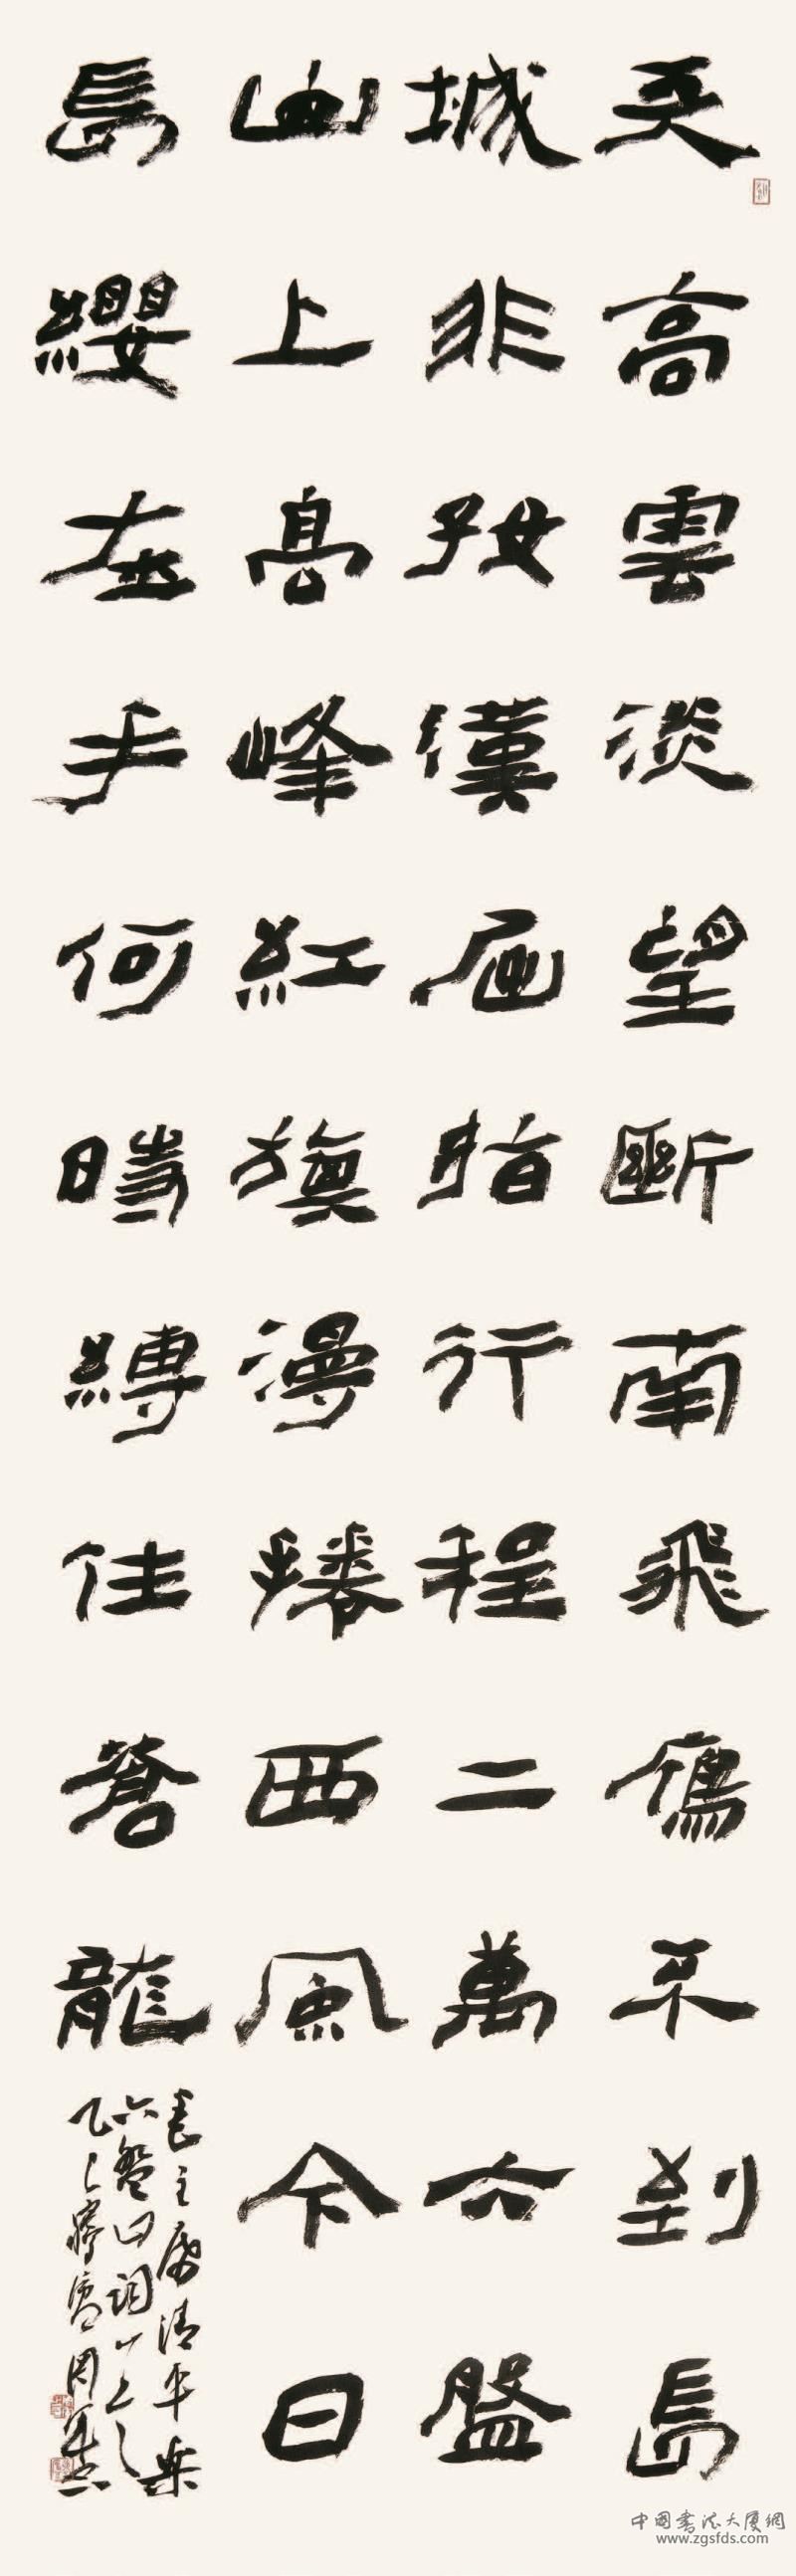 天高雲淡望斷南飛鴈不到長
城非好漢屈指行程二萬六盤
山上高峰紅旗漫捲西風今日
長纓在手何時縛住蒼龍
毛主席清平樂
六盤山詞
乙巳
中国书法大厦網
www.zgsfds.com